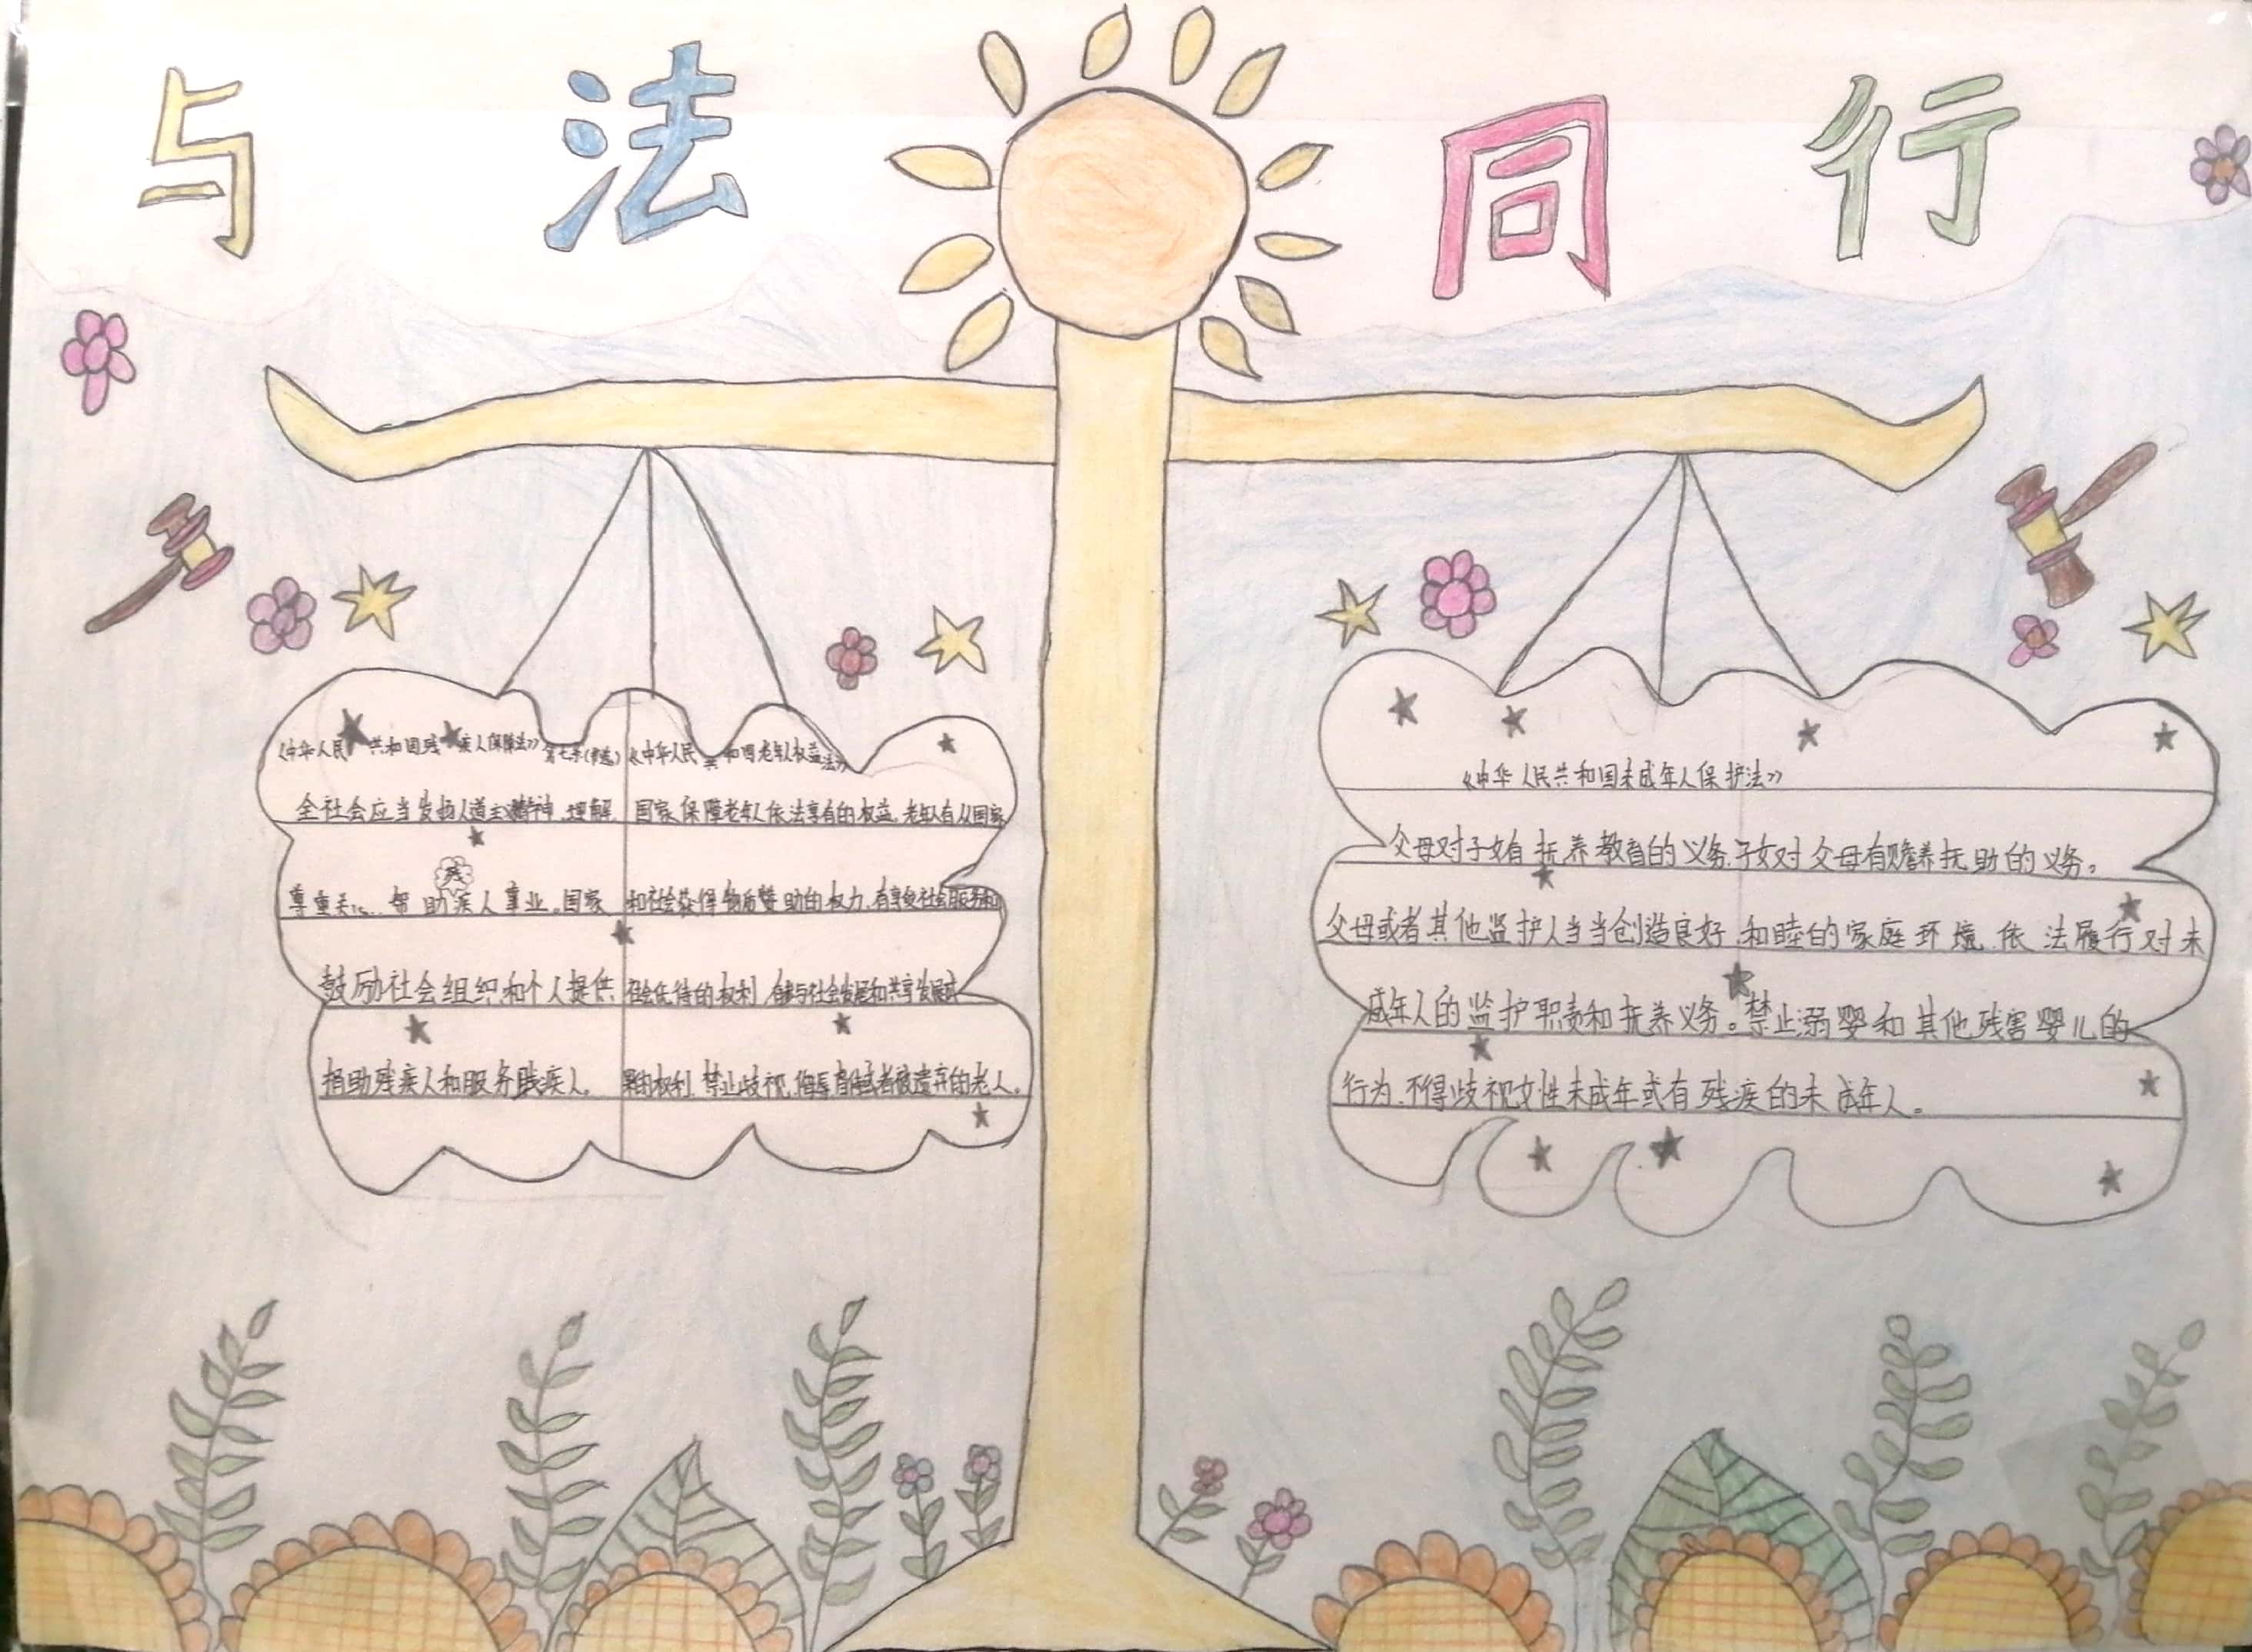 与法同行
《中华人民共和国残疾人保障法》第七条(节选)
全社会应当发扬人道主义精神,理解
尊重关心、帮助残疾人事业。国家
鼓励社会组织和个人提供
捐助残疾人和服务残疾人。
《中华人民共和国老年人权益法》
国家保障老年人依法享有的权益,老年人有从国家
和社会获得物质赞助的权力,有享受社会服务和
社会优待的权利,有参与社会发展和共享发展成
果的权利,禁止歧视,侮辱
或者被遗弃的老人。
《中华人民共和国未成年人保护法》
父母对子女有抚养教育的义务,子女对父母有赡养扶助的义务。
父母或者其他监护人当当创造良好,和睦的家庭环境,依法履行对未
成年人的监护职责和抚养义务。禁止溺婴和其他残害婴儿的
行为,不得歧视女性未成年或有残疾的未成年人。